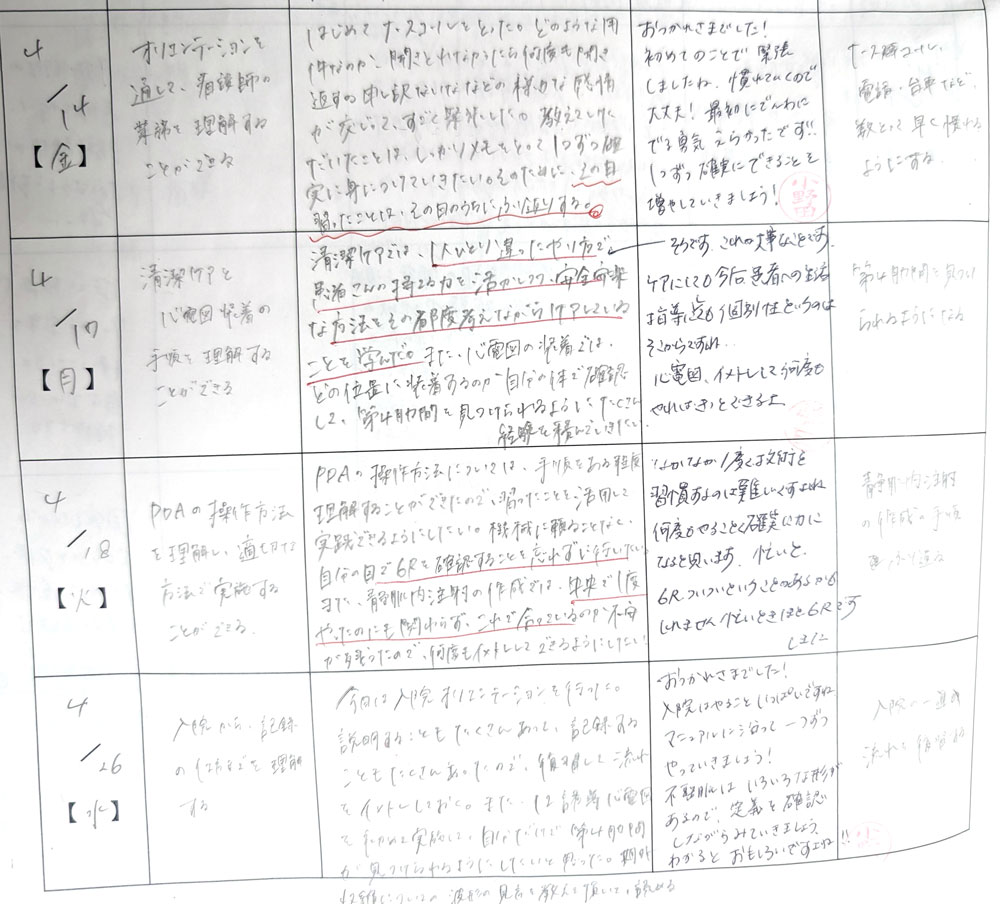 4/14
【金】
オリエンテーションを
通して、看護師の
業務を理解する
ことができる
はじめてナースコールをとった。どのような用
件なのか、聞きとれなかったら何度も聞き
返すの申し訳ないななどの様々な感情
が交じって、すごく緊張した。教えていた
だいたことは、しっかりメモをとって1つずつ確
実に身につけていきたい。そのために、その日
習ったことは、その日のうちにふり返りする。
おつかれさまでした！
初めてのことで緊張
しましたね。慣れていくので
大丈夫！最初にでんわに
でる勇気えらかったです!!
1つずつ確実にできることを
増やしていきましょう！
小野田
電話・台車など、
数とって早く慣れる
ようにする。
4/17
【月】
清潔ケアと
心電図装着の
手順を理解する
ことができる
清潔ケアでは、1人ひとり違ったやり方で、
患者さんの持てる力を活かしつつ、安全安楽
な方法をその都度考えながらケアしている
ことを学んだ。また、心電図の装着では、
どの位置に装着するのか自分の体で確認
して、第4肋間を見つけられるようにたくさん
経験を積んでいきたい。
そうです。これが大事なことです。
ケアにしても今后患者への生活
指導点も個別性というのは
そこからですね。
心電図、イメトレして何度も
やればきっとできるよ
第4肋間を見つけ
られるようになる
4/18
【火】
PDAの操作方法
を理解し、適切な
方法で実施する
ことができる。
PDAの操作方法については、手順をある程度
理解することができたので、習ったことを活用して
実践できるようにしたい。機械に頼ることなく、
自分の目で6Rを確認することを忘れずに行いたい。
また、静脈内注射の作成では、中央で1度
やったのにも関わらず、これで合っているのか不安
が残ったので、何度もイメトレしてできるようにしたい。
なかなか1度で技術を
習慣するのは難しいですよね
何度もやること確実に力に
なると思います。忙しいと、
6Rついついということもあるかも
しれません。忙しいときほど6Rです
静脈内注射
の作成の手順
4/26
【水】
入院から、記録
の仕方までを理解
する
今日は入院オリエンテーションを行った。
説明することもたくさんあって、記録する
こともたくさんあったので、復習して流れ
をイメトレしておく。また、12誘導心電図
を初めて実施して、自分だけで第4肋間
が見つけられるようにしたいと思った。期外
おつかれさまでした！
入院はやることいっぱいですね
マニュアルに沿って一つずつ
やっていきましょう！
不整脈はいろいろな形が
あるので、定義を確認
しながらみていきましょう。
わかるとおもしろいですよね!!
入院の一連の
流れを